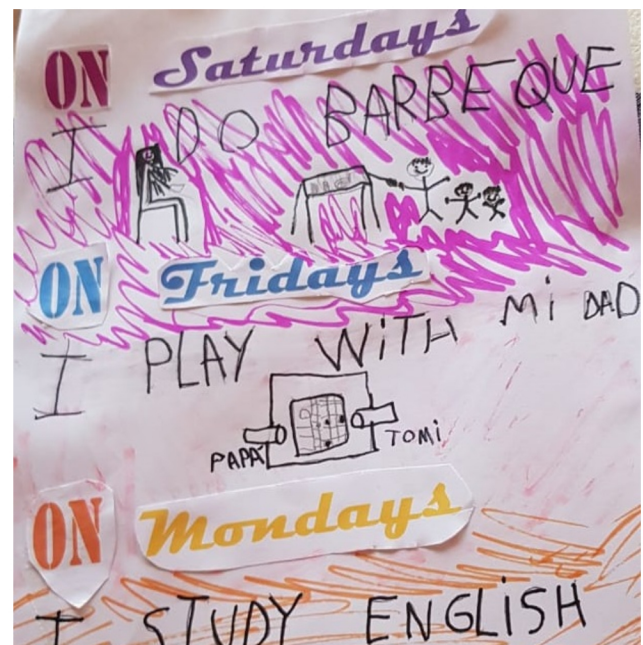 ON Saturdays
I DO BARBEQUE
ON Fridays
I PLAY WITH Mi DAD
PAPA TOMi
ON Mondays
I STUDY ENGLiSH